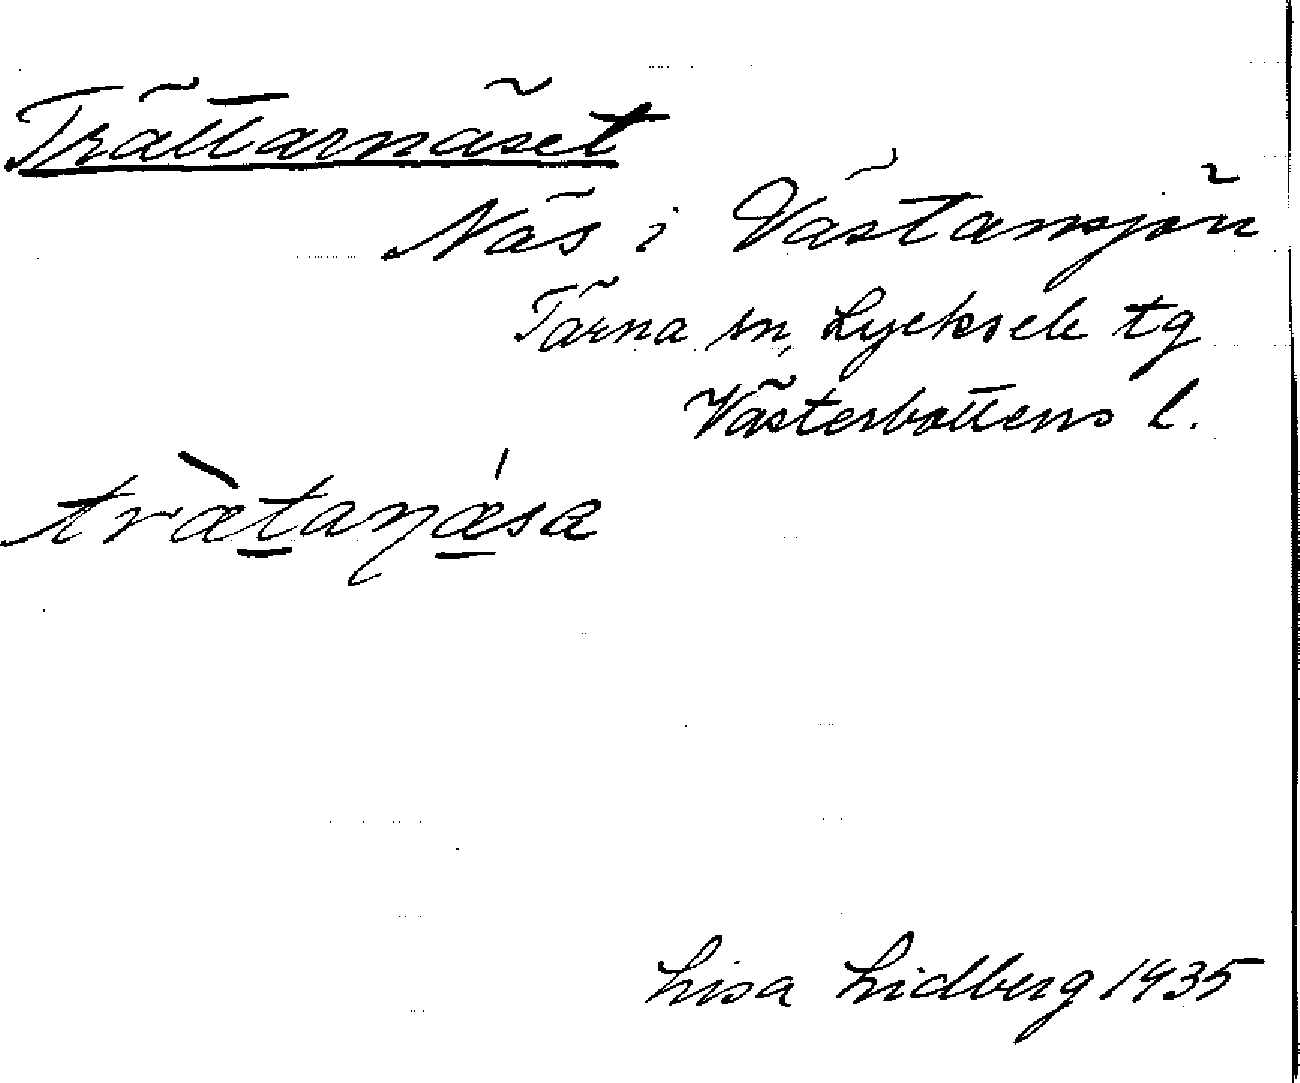 Trättarnäset
Näs i Västansjön
Tärna sn, Lycksele tg
Västerbottens l.
træ̀taɳǽsa
Lisa Lidberg 1935